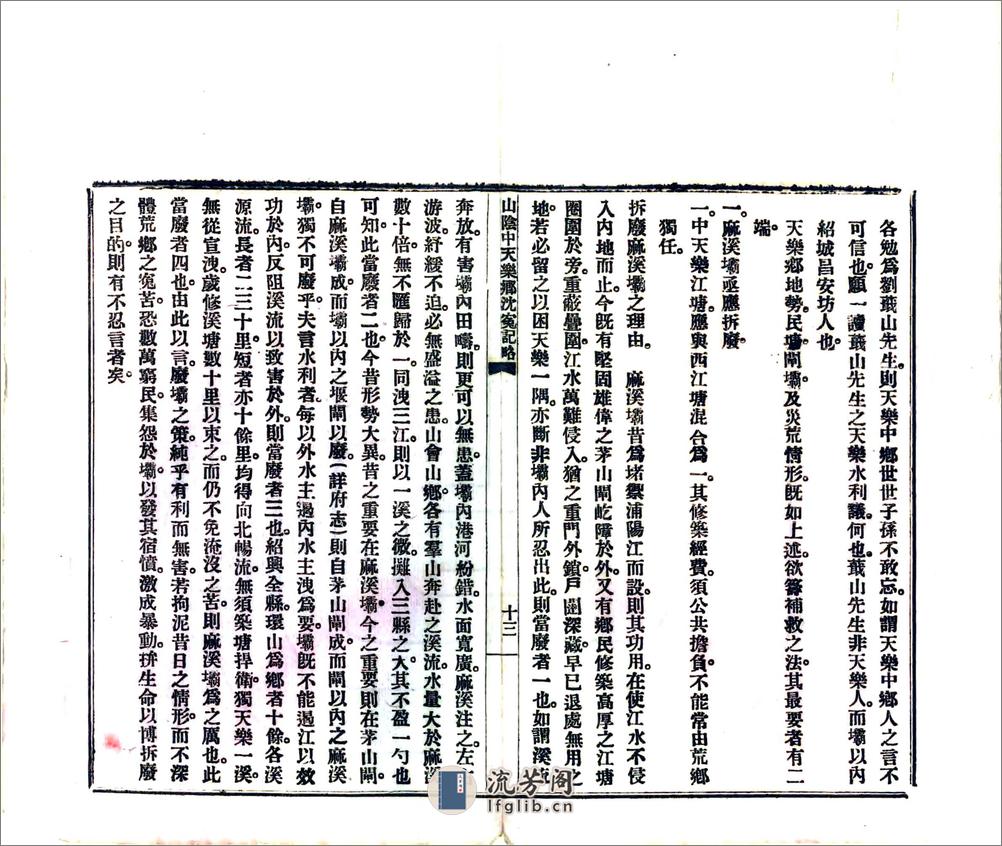 各勉爲劉蕺山先生。則天樂中鄉世世子孫不敢忘。如謂天樂中鄉人之言不
可信也。願一讀蕺山先生之天樂水利議。何也。蕺山先生非天樂人。而壩以內
紹城昌安坊人也。
天樂鄉地勢。民塘。閘壩。及災荒情形。既如上述。欲籌補救之法。其最要者有二
端。
一。麻溪壩亟應拆廢。
一。中天樂江塘。應與西江塘混合爲一。其修築經費。須公共擔負。不能當由荒鄉
獨任。
拆廢麻溪壩之理由。 麻溪壩昔爲堵禦浦陽江而設。則其功用。在使江水不侵
入內地而止。今既有堅固雄偉之茅山閘屹障於外。又有鄉民修築高厚之江塘
圈圍於旁。重蔽疊圍。江水萬難侵入。猶之重門外鎖。戶闥深藏。早已退處無用之
地。若必留之以困天樂一隅。亦斷非壩內人所忍出此。則當廢者一也。如謂溪流
山陰中天樂鄉沈寃記略
十三
奔放。有害壩內田疇。則更可以無患。蓋壩內港河紛錯。水面寬廣。麻溪注之。左
游波紆緩不迫。必無盛溢之患。山會山鄉。各有羣山奔赴之溪流。水量大於麻溪
數十倍。無不匯歸於一。同洩三江。則以一溪之微。攤入三縣之大。其不盈一勺也
可知。此當廢者二也。今昔形勢大異。昔之重要在麻溪壩。今之重要則在茅山閘。
自麻溪壩成。而壩以內之堰閘以廢。(詳府志)則自茅山閘成。而閘以內之麻溪
壩。獨不可廢乎。夫言水利者。每以外水主遏內水主洩爲要。壩既不能遏江以效
功於內。反阻溪流以致害於外。則當廢者三也。紹興全縣。環山爲鄉者十餘。各溪
源流。長者二三十里。短者亦十餘里。均得向北暢流。無須築塘捍衛。獨天樂一溪。
無從宣洩。歲修溪塘數十里以束之。而仍不免淹沒之苦。則麻溪壩爲之厲也。此
當廢者四也。由此以言。廢壩之策。純乎有利而無害。若拘泥昔日之情形。而不深
體荒鄉之寃苦。恐數萬窮民。集怨於壩。以發其宿憤。激成暴動。拚生命以博拆廢
之目的。則有不忍言者矣。
流芳阁
lfglib.cn